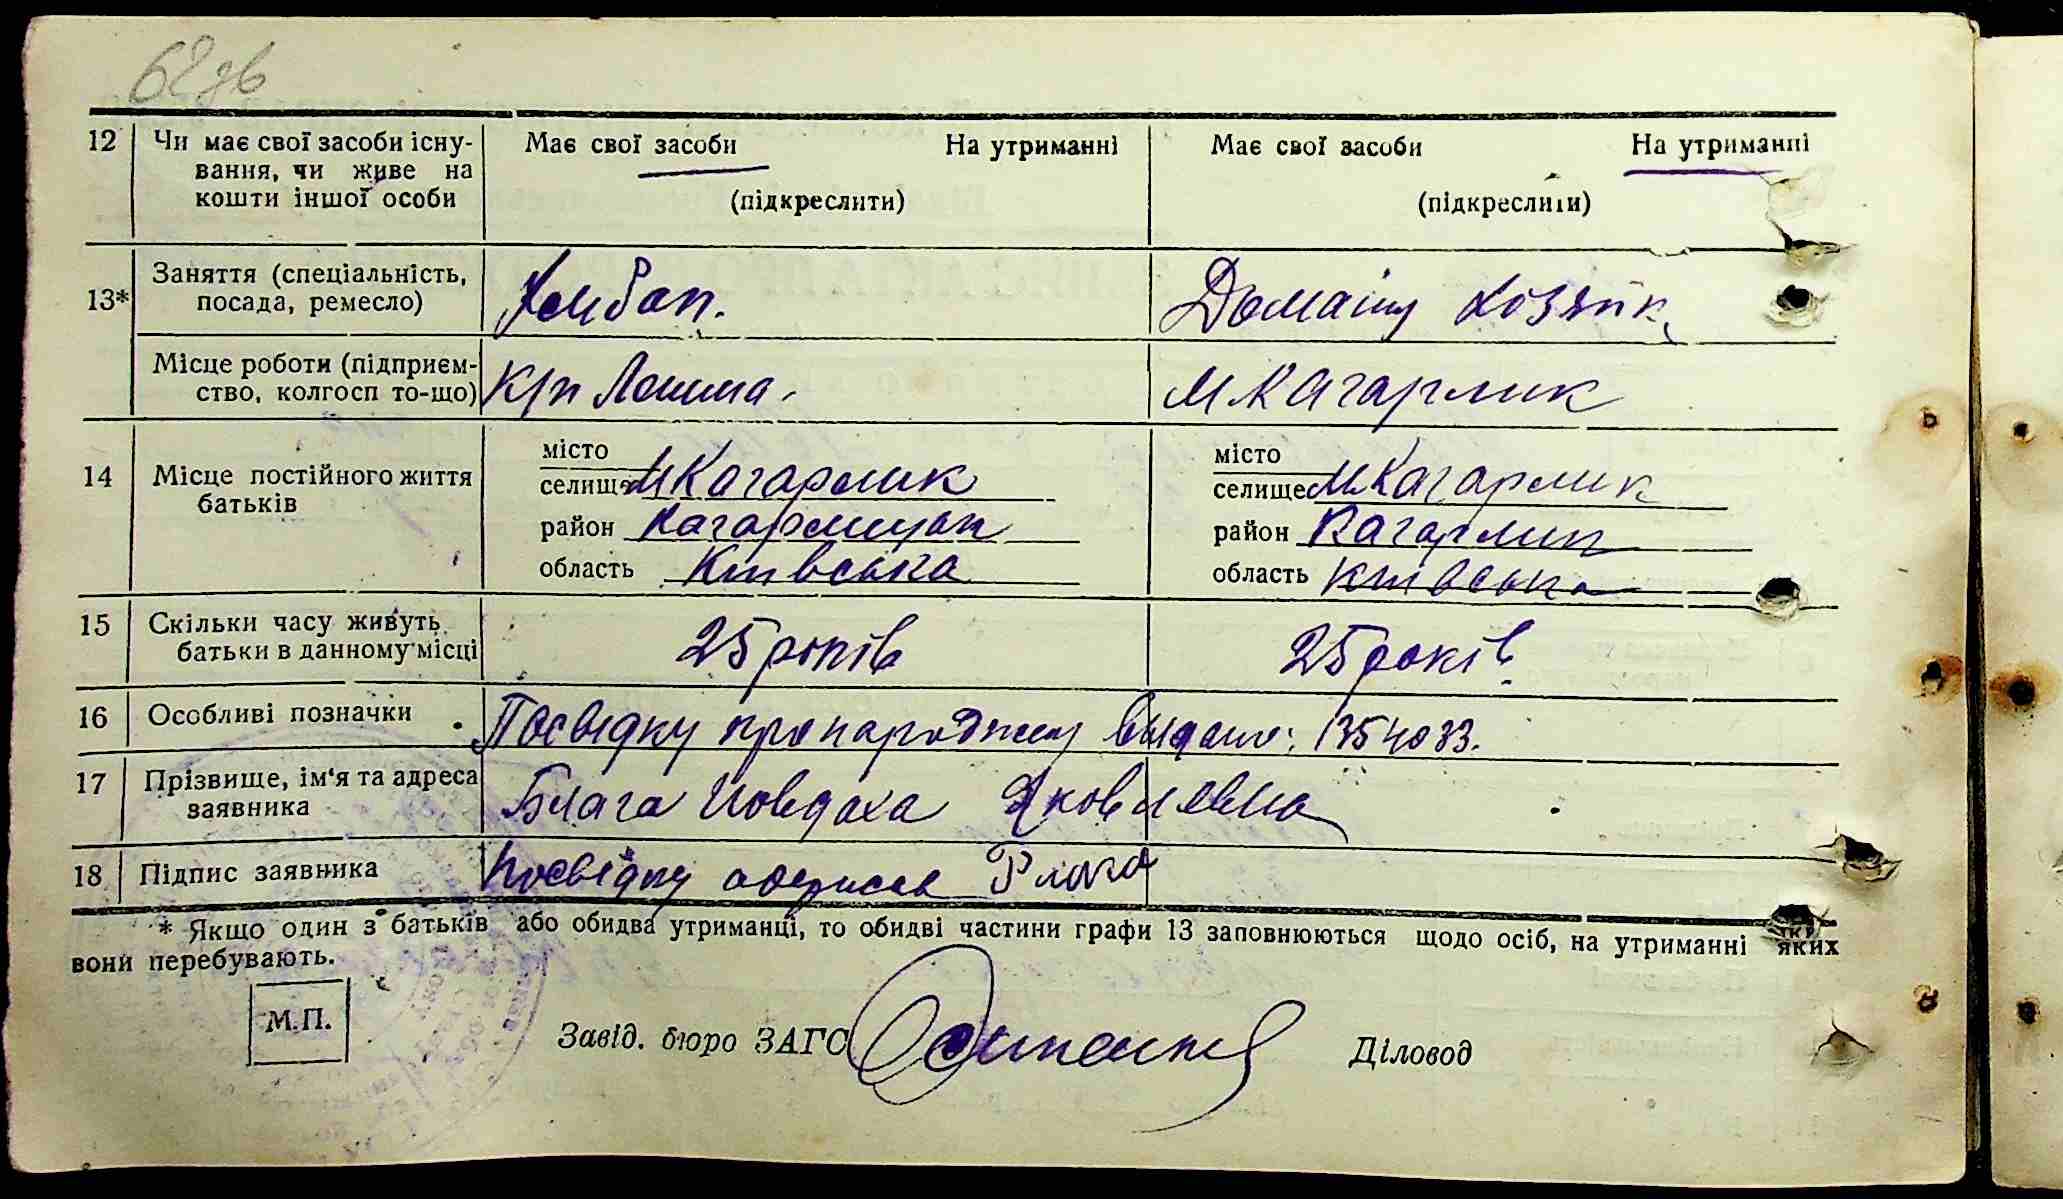 62зв
12 Чи має свої засоби існу- Має свої засоби На утриманні Має свої засоби На утриманні
вання, чи живе на
кошти іншої особи (підкреслити) (підкреслити)
13* Заняття (спеціальність, Домашн хозяйк
посада, ремесло)
Місце роботи (підприєм- м Кагарлик
ство, колгосп то-що)
14 Місце постійного життя батьків місто місто
селище м Кагарлик селище м Кагарлик
район Кагарлицьк район Кагарлик
область Київська область Київська
15 Скільки часу живуть 25 років 25 років
батьки в данному місці
16 Особливі позначки Посвідку про народжен видано: 1354033.
17 Прізвище, ім'я та адреса Блага Иовдоха Яковлевна
заявника
18 Підпис заявника Посвідку Блага
* Якщо один з батьків або обидва утриманці, то обидві частини графи 13 заповнюються щодо осіб, на утриманні яких
вони перебувають.
М.П.
Завід. бюро ЗАГС Діловод